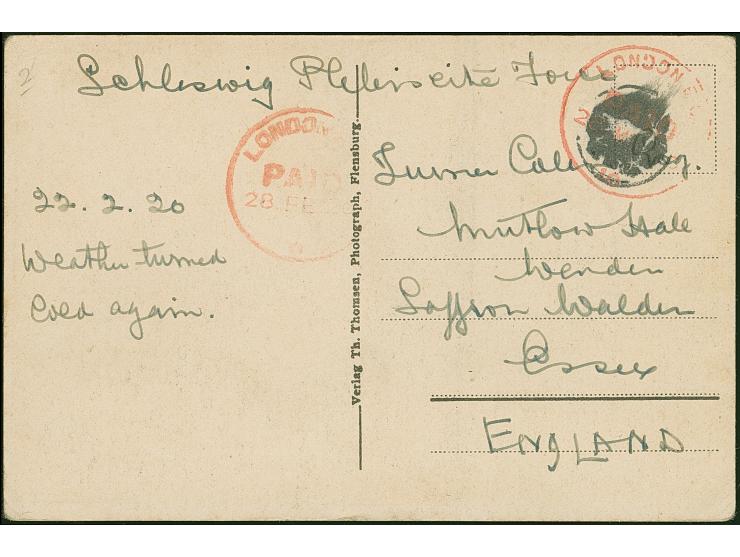 2
Schleswig Plebiscite Force
LONDON
PAID
28 FE
LONDON E.C.
22.2.20
Weather turned
Cold again.
Verlag Th. Thomsen, Photograph, Flensburg.
Turner Esq.
Mutlow Hall
Wenden
Saffron Walden
Essex
ENGLAND